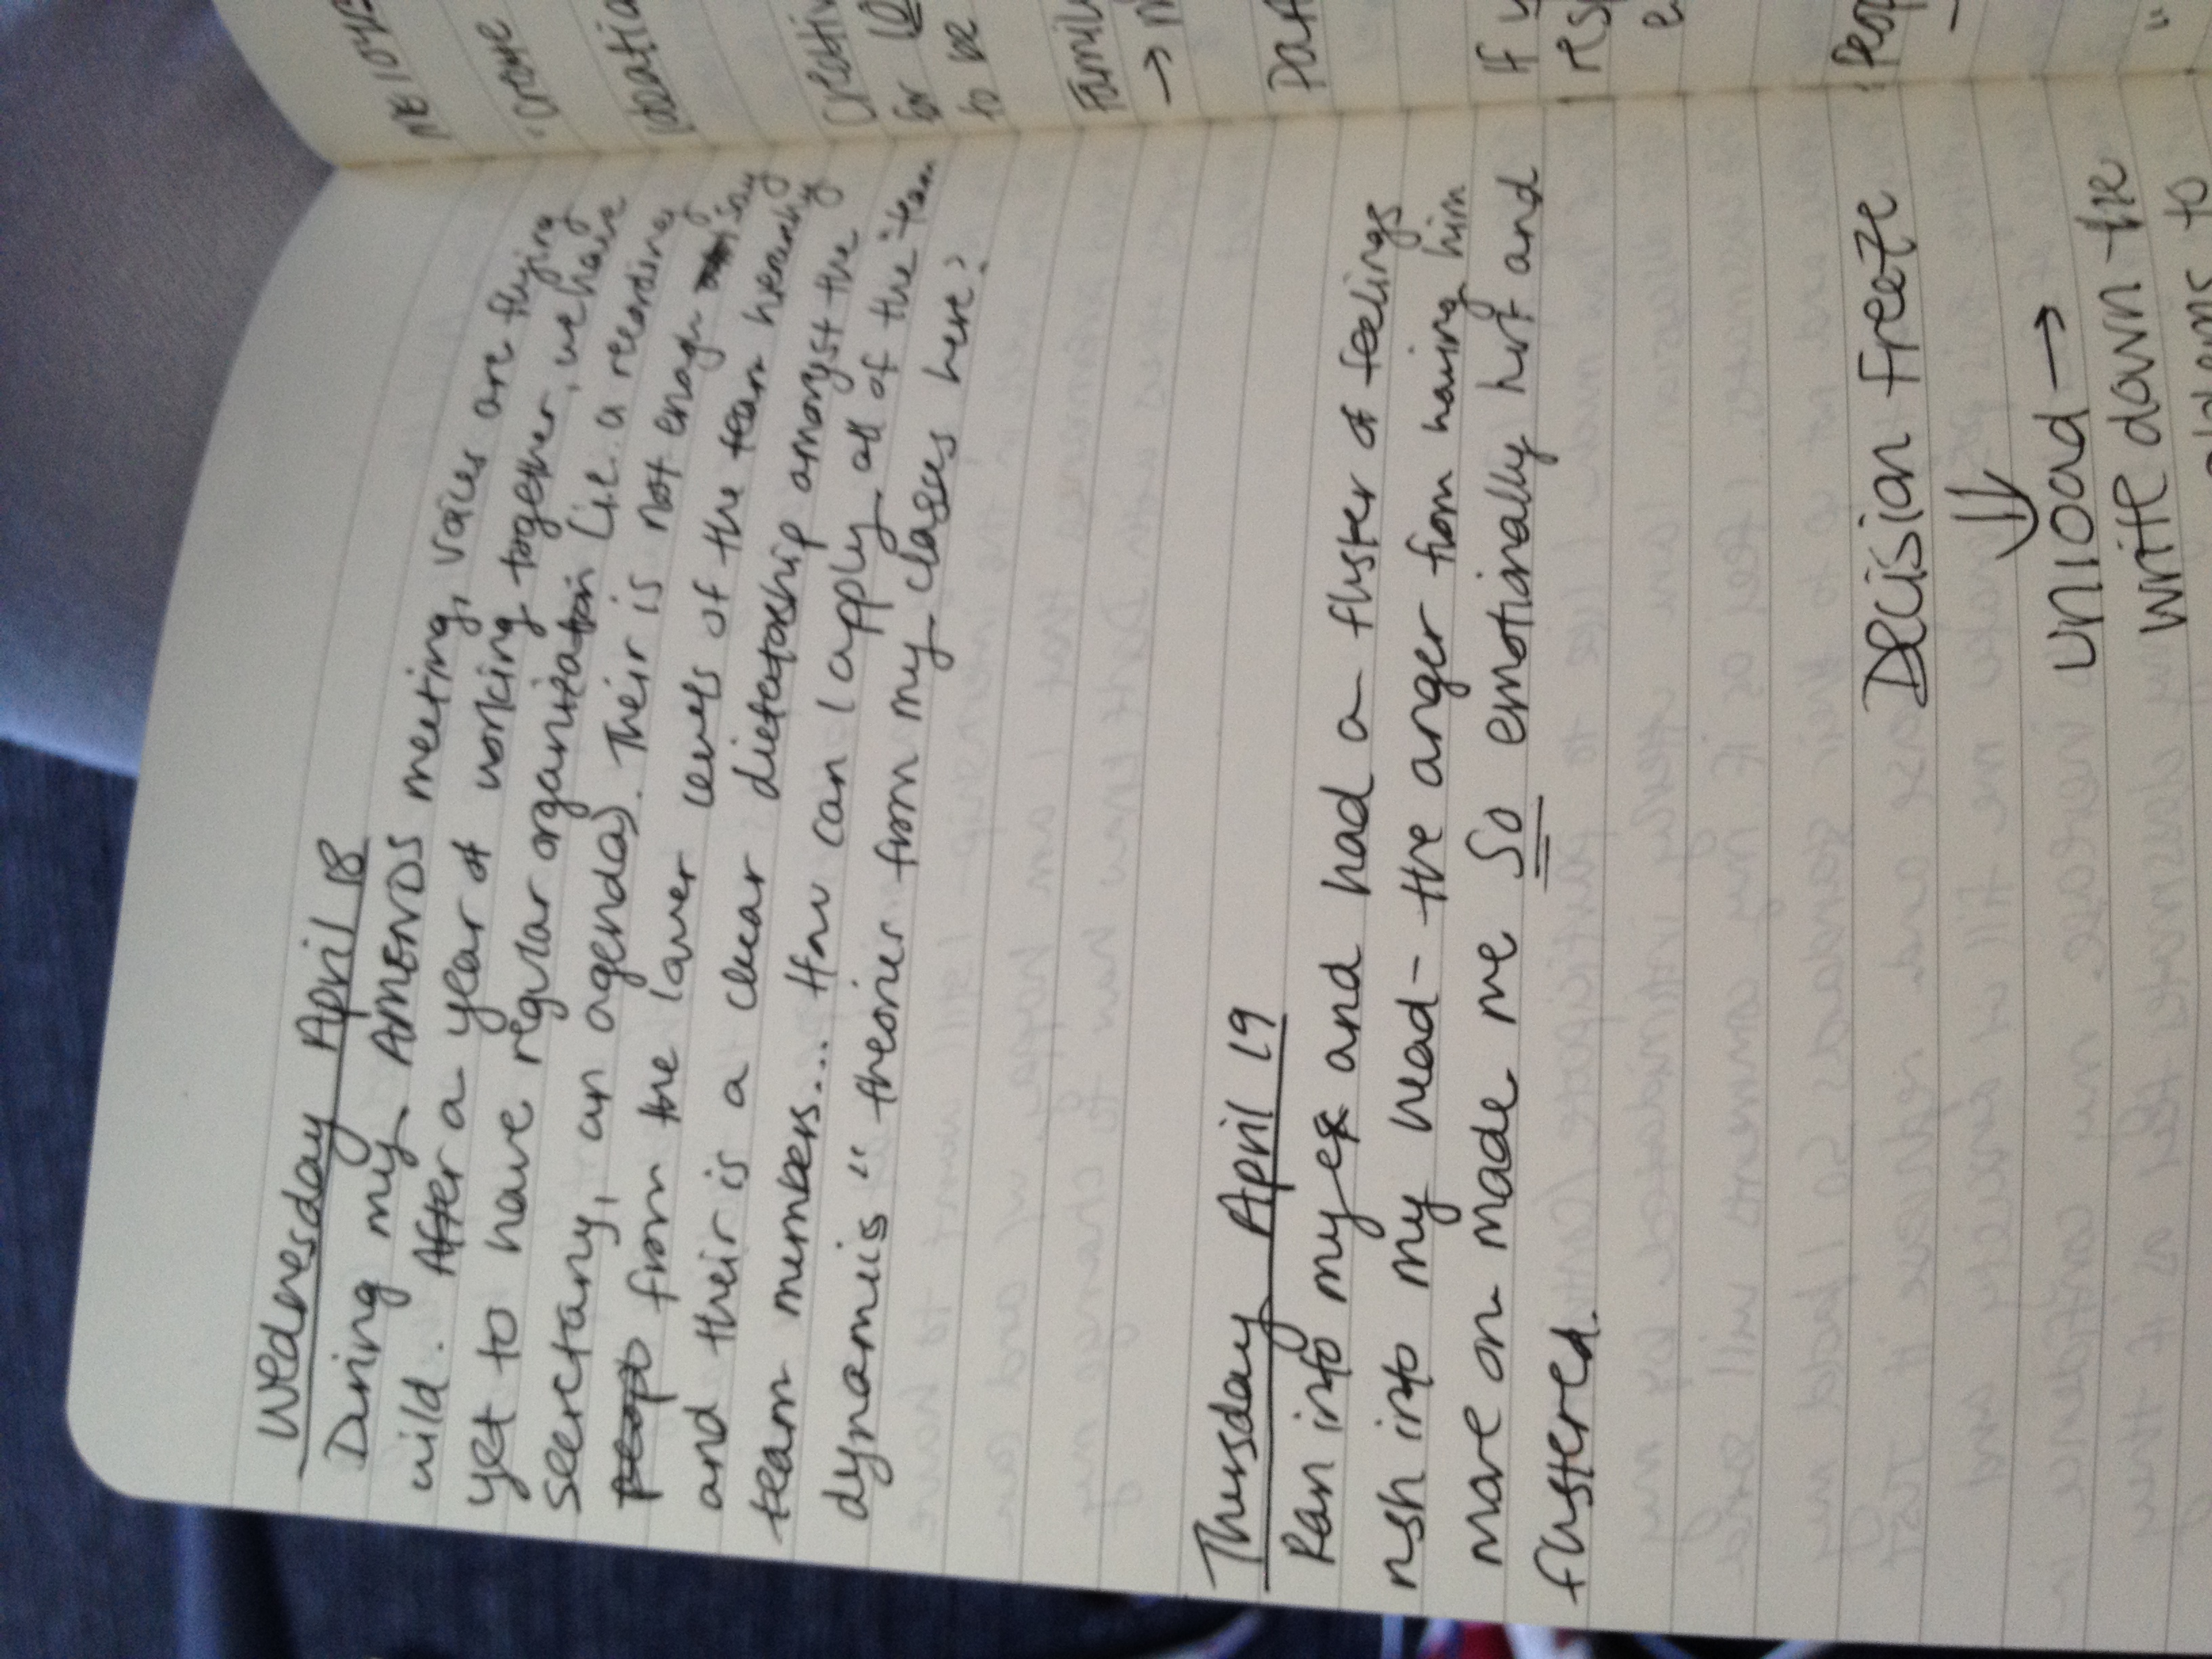 Wednesday April 18
During my AMENDS meeting, voices are flying
wild. After a year of working together, we have
yet to have regular organization (i.e. a recording
secretary, an agenda). Their is not enough say
from the lower levels of the team hierarchy
and their is a clear dictatorship amongst the
team members... How can I apply all of the "team
dynamics" theories from my classes here?
Thursday April 19
Ran into my ex and had a fluster of feelings
rush into my head- the anger from having him
move on made me So emotionally hurt and
flustered.
Decision Freeze
⇓
unload →
write down the
to
ME 104B
"create
Ideatio
Creativ
for
to be
Famil
→
If
res
Peop